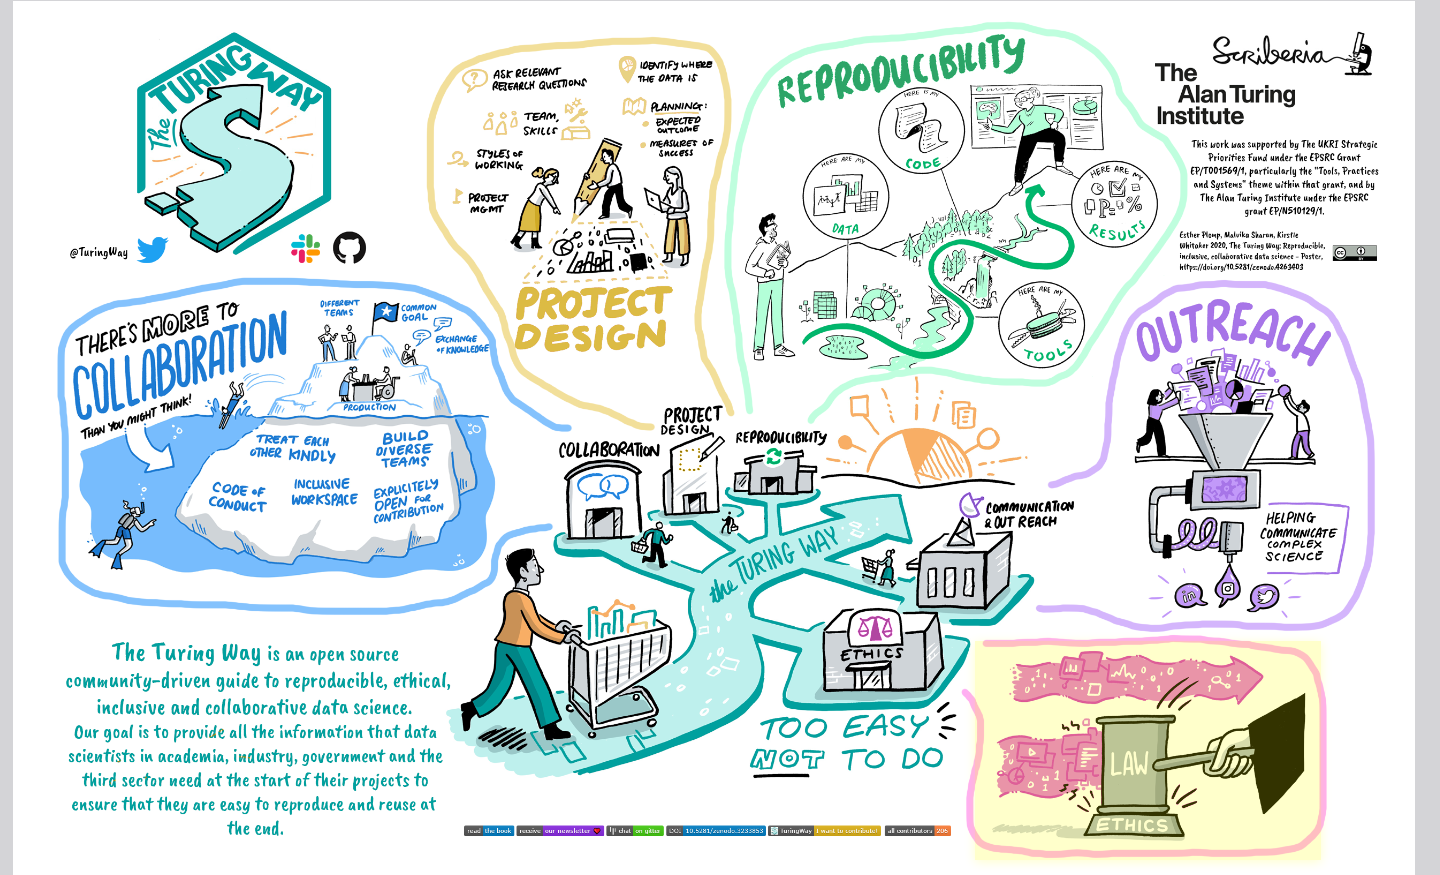 The
TURING WAY
@TuringWay
ASK RELEVANT
RESEARCH QUESTIONS
TEAM,
SKILLS
STYLES OF
WORKING
PROJECT
MGMT
IDENTIFY WHERE
THE DATA IS
PLANNING:
EXPECTED
OUTCOME
MEASURES OF
SUCCESS
PROJECT
DESIGN
REPRODUCIBILITY
HERE IS MY
CODE
HERE ARE MY
DATA
HERE ARE MY
RESULTS
HERE ARE MY
TOOLS
Scriberia
The
Alan Turing
Institute
This work was supported by The UKRI Strategic
Priorities Fund under the EPSRC Grant
EP/T001569/1, particularly the "Tools, Practices
and Systems" theme within that grant, and by
The Alan Turing Institute under the EPSRC
grant EP/N510129/1.
Esther Plomp, Malvika Sharan, Kirstie
Whitaker 2020, The Turing Way: Reproducible,
inclusive, collaborative data science - Poster,
https://doi.org/10.5281/zenodo.4263403
cc
BY
THERE'S MORE TO
COLLABORATION
THAN YOU MIGHT THINK!
DIFFERENT
TEAMS
COMMON
GOAL
EXCHANGE
OF KNOWLEDGE
PRODUCTION
TREAT EACH
OTHER KINDLY
BUILD
DIVERSE
TEAMS
CODE OF
CONDUCT
INCLUSIVE
WORKSPACE
EXPLICITELY
OPEN FOR
CONTRIBUTION
OUTREACH
HELPING
COMMUNICATE
COMPLEX
SCIENCE
in
COLLABORATION
PROJECT
DESIGN
REPRODUCIBILITY
COMMUNICATION
& OUT REACH
the TURING WAY
ETHICS
TOO EASY
NOT TO DO
The Turing Way is an open source
community-driven guide to reproducible, ethical,
inclusive and collaborative data science.
Our goal is to provide all the information that data
scientists in academia, industry, government and the
third sector need at the start of their projects to
ensure that they are easy to reproduce and reuse at
the end.
read the book receive our newsletter chat on gitter DOI 10.5281/zenodo.3233853 TuringWay I want to contribute! all contributors 206
LAW
ETHICS